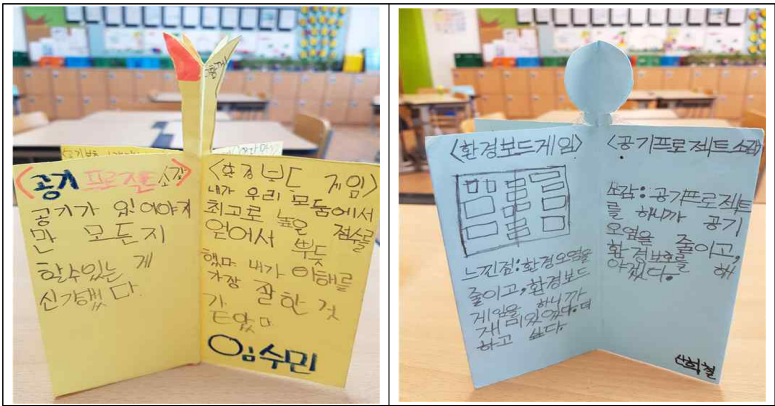 <공기 프로젝트 소감>
공기가 있어야지
만 모든지
할수있는 게
신기했다.
<환경보드 게임>
내가 우리 모둠에서
최고로 높은 점수를
얻어서 뿌듯
했다 내가 이해를
가장 잘한 것
임수민
<환경보드게임>
느낀점:환경오염을
줄이고,환경보드
게임을 하니까
재미있었다.더
하고 싶다.
<공기프로젝트 소감>
소감:공기프로젝트
를 하니까 공기
오염을 줄이고,
환경보호를 해
야겠다.